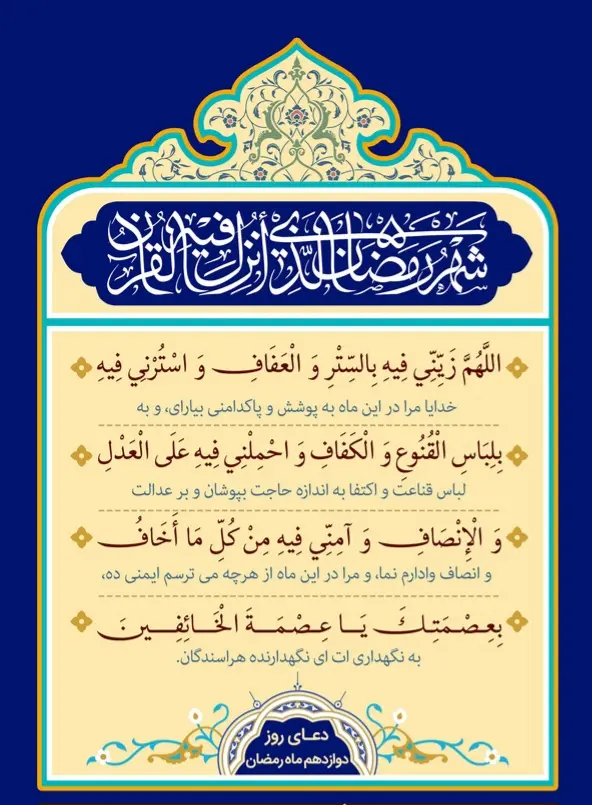 شَهْرُ رَمَضَانَ الَّذِي أُنْزِلَ فِيهِ الْقُرْآنُ
اللَّهُمَّ زَيِّنِّي فِيهِ بِالسِّتْرِ وَ الْعَفَافِ وَ اسْتُرْنِي فِيهِ
خدایا مرا در این ماه به پوشش و پاکدامنی بیارای، و به
بِلِبَاسِ الْقُنُوعِ وَ الْكَفَافِ وَ احْمِلْنِي فِيهِ عَلَى الْعَدْلِ
لباس قناعت و اکتفا به اندازه حاجت بپوشان و بر عدالت
وَ الْإِنْصَافِ وَ آمِنِّي فِيهِ مِنْ كُلِّ مَا أَخَافُ
و انصاف وادارم نما، و مرا در این ماه از هرچه می ترسم ایمنی ده،
بِعِصْمَتِكَ يَا عِصْمَةَ الْخَائِفِينَ
به نگهداری ات ای نگهدارنده هراسندگان.
دعای روز
دوازدهم ماه رمضان